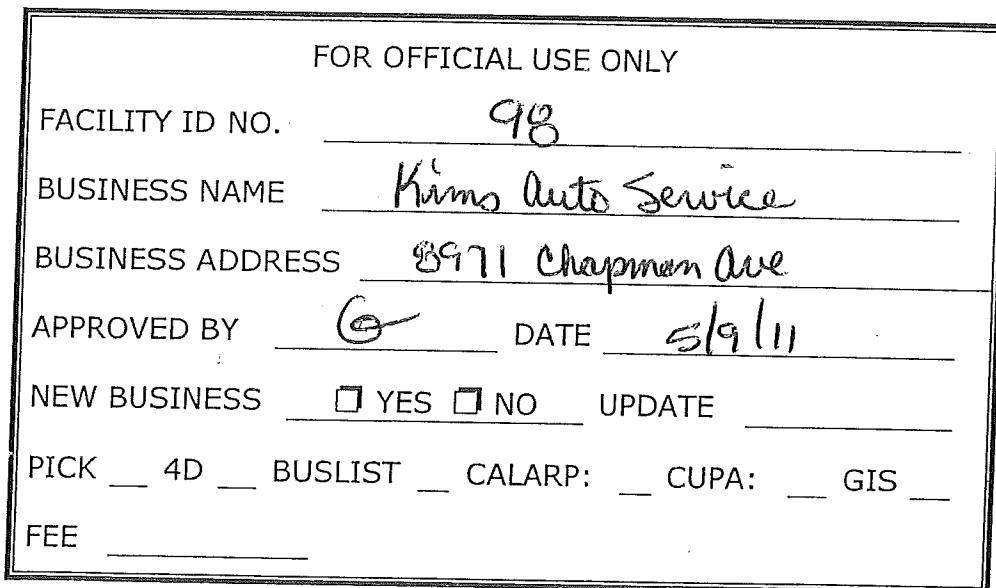 FOR OFFICIAL USE ONLY
FACILITY ID NO. 98
BUSINESS NAME Kims Auto Service
BUSINESS ADDRESS 8971 Chapman Ave
APPROVED BY DATE 5/9/11
NEW BUSINESS ☐ YES ☐ NO UPDATE ____
PICK __ 4D __ BUSLIST __ CALARP: __ CUPA: __ GIS __
FEE ____